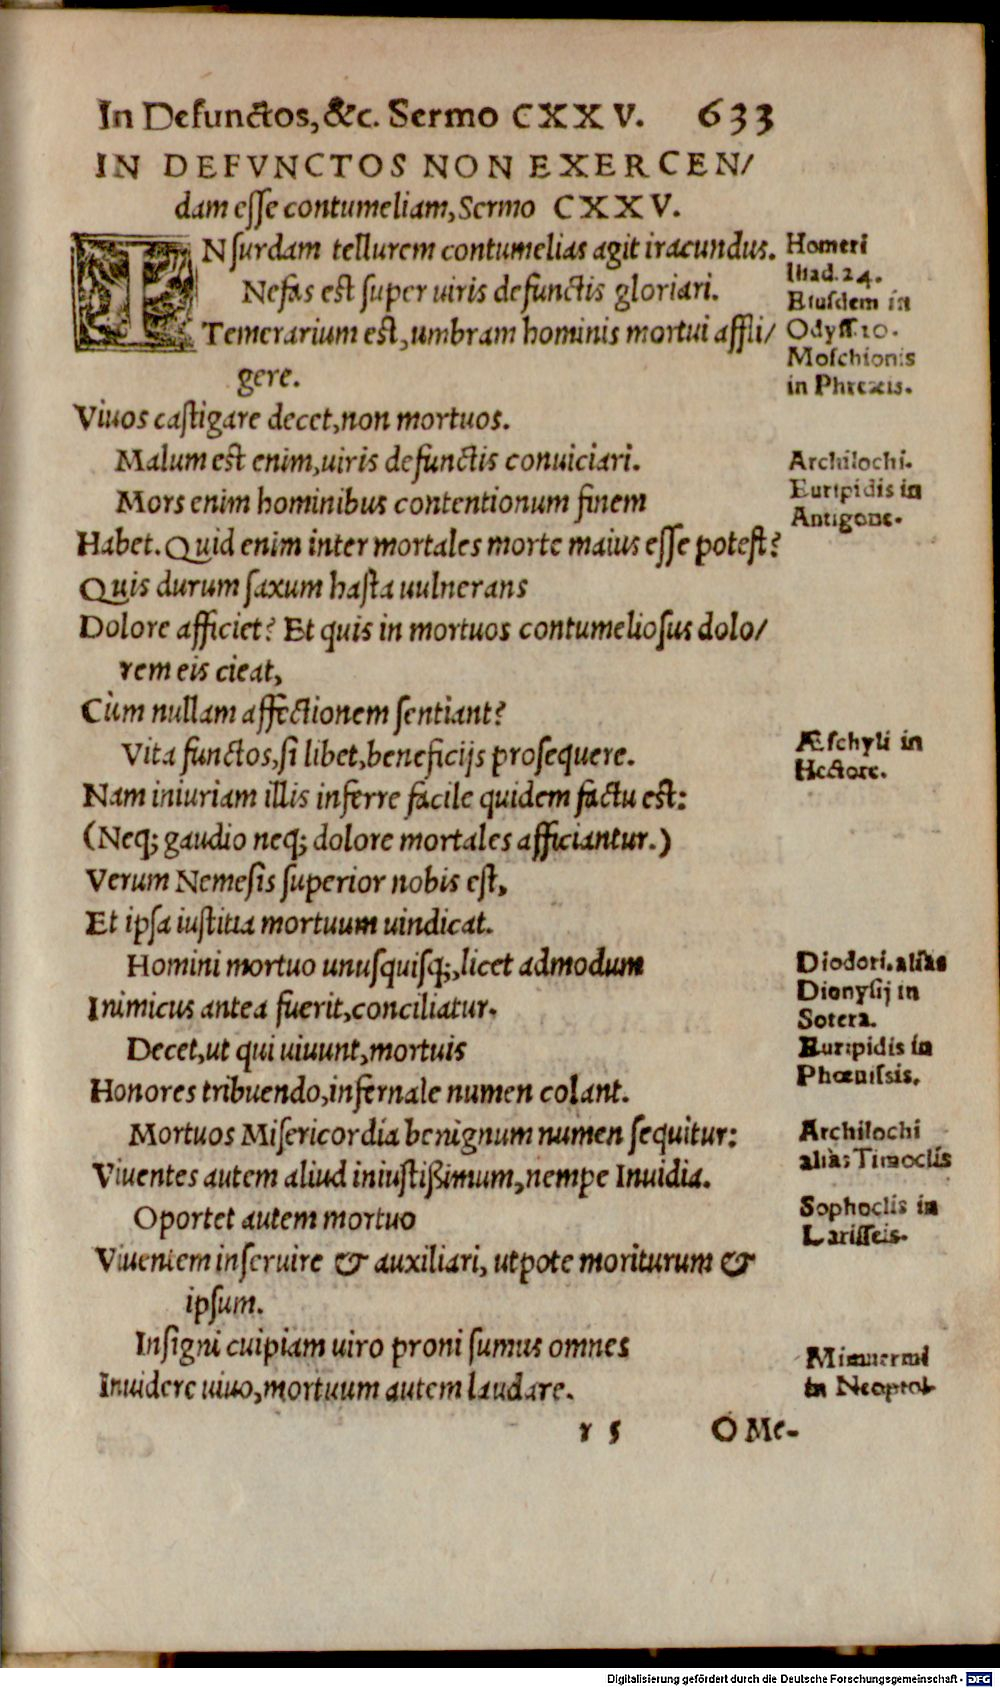 In Defunctos, &c. Sermo CXXV. 633
IN DEFVNCTOS NON EXERCEN/
dam esse contumeliam, Sermo CXXV.
IN surdam tellurem contumelias agit iracundus.
Nefas est super uiris defunctis gloriari.
Temerarium est, umbram hominis mortui affli/
gere.
Viuos castigare decet, non mortuos.
Malum est enim, uiris defunctis conuiciari.
Mors enim hominibus contentionum finem
Habet. Quid enim inter mortales morte maius esse potest?
Quis durum saxum hasta uulnerans
Dolore afficiet? Et quis in mortuos contumeliosus dolo/
rem eis cieat,
Cùm nullam affectionem sentiant?
Vita functos, si libet, beneficijs prosequere.
Nam iniuriam illis inferre facile quidem factu est:
(Neq; gaudio neq; dolore mortales afficiantur.)
Verum Nemesis superior nobis est,
Et ipsa iustitia mortuum uindicat.
Homini mortuo unusquisq;, licet admodum
Inimicus antea fuerit, conciliatur.
Decet, ut qui uiuunt, mortuis
Honores tribuendo, infernale numen colant.
Mortuos Misericordia benignum numen sequitur:
Viuentes autem aliud iniustißimum, nempe Inuidia.
Oportet autem mortuo
Viuentem inseruire & auxiliari, utpote moriturum &
ipsum.
Insigni cuipiam uiro proni sumus omnes
Inuidere uiuo, mortuum autem laudare.
r 5 O Me-
Homeri
Iliad. 24.
Eiusdem in
Odyss. 10.
Moschionis
in Phrexis.
Archilochi.
Euripidis in
Antigone.
Æschyli in
Hectore.
Diodori. aliàs
Dionysij in
Sotera.
Euripidis in
Phœnissis.
Archilochi
aliàs Timoclis
Sophoclis in
Larisseis.
Mimnermi
in Neoptol.
Digitalisierung gefördert durch die Deutsche Forschungsgemeinschaft - DFG